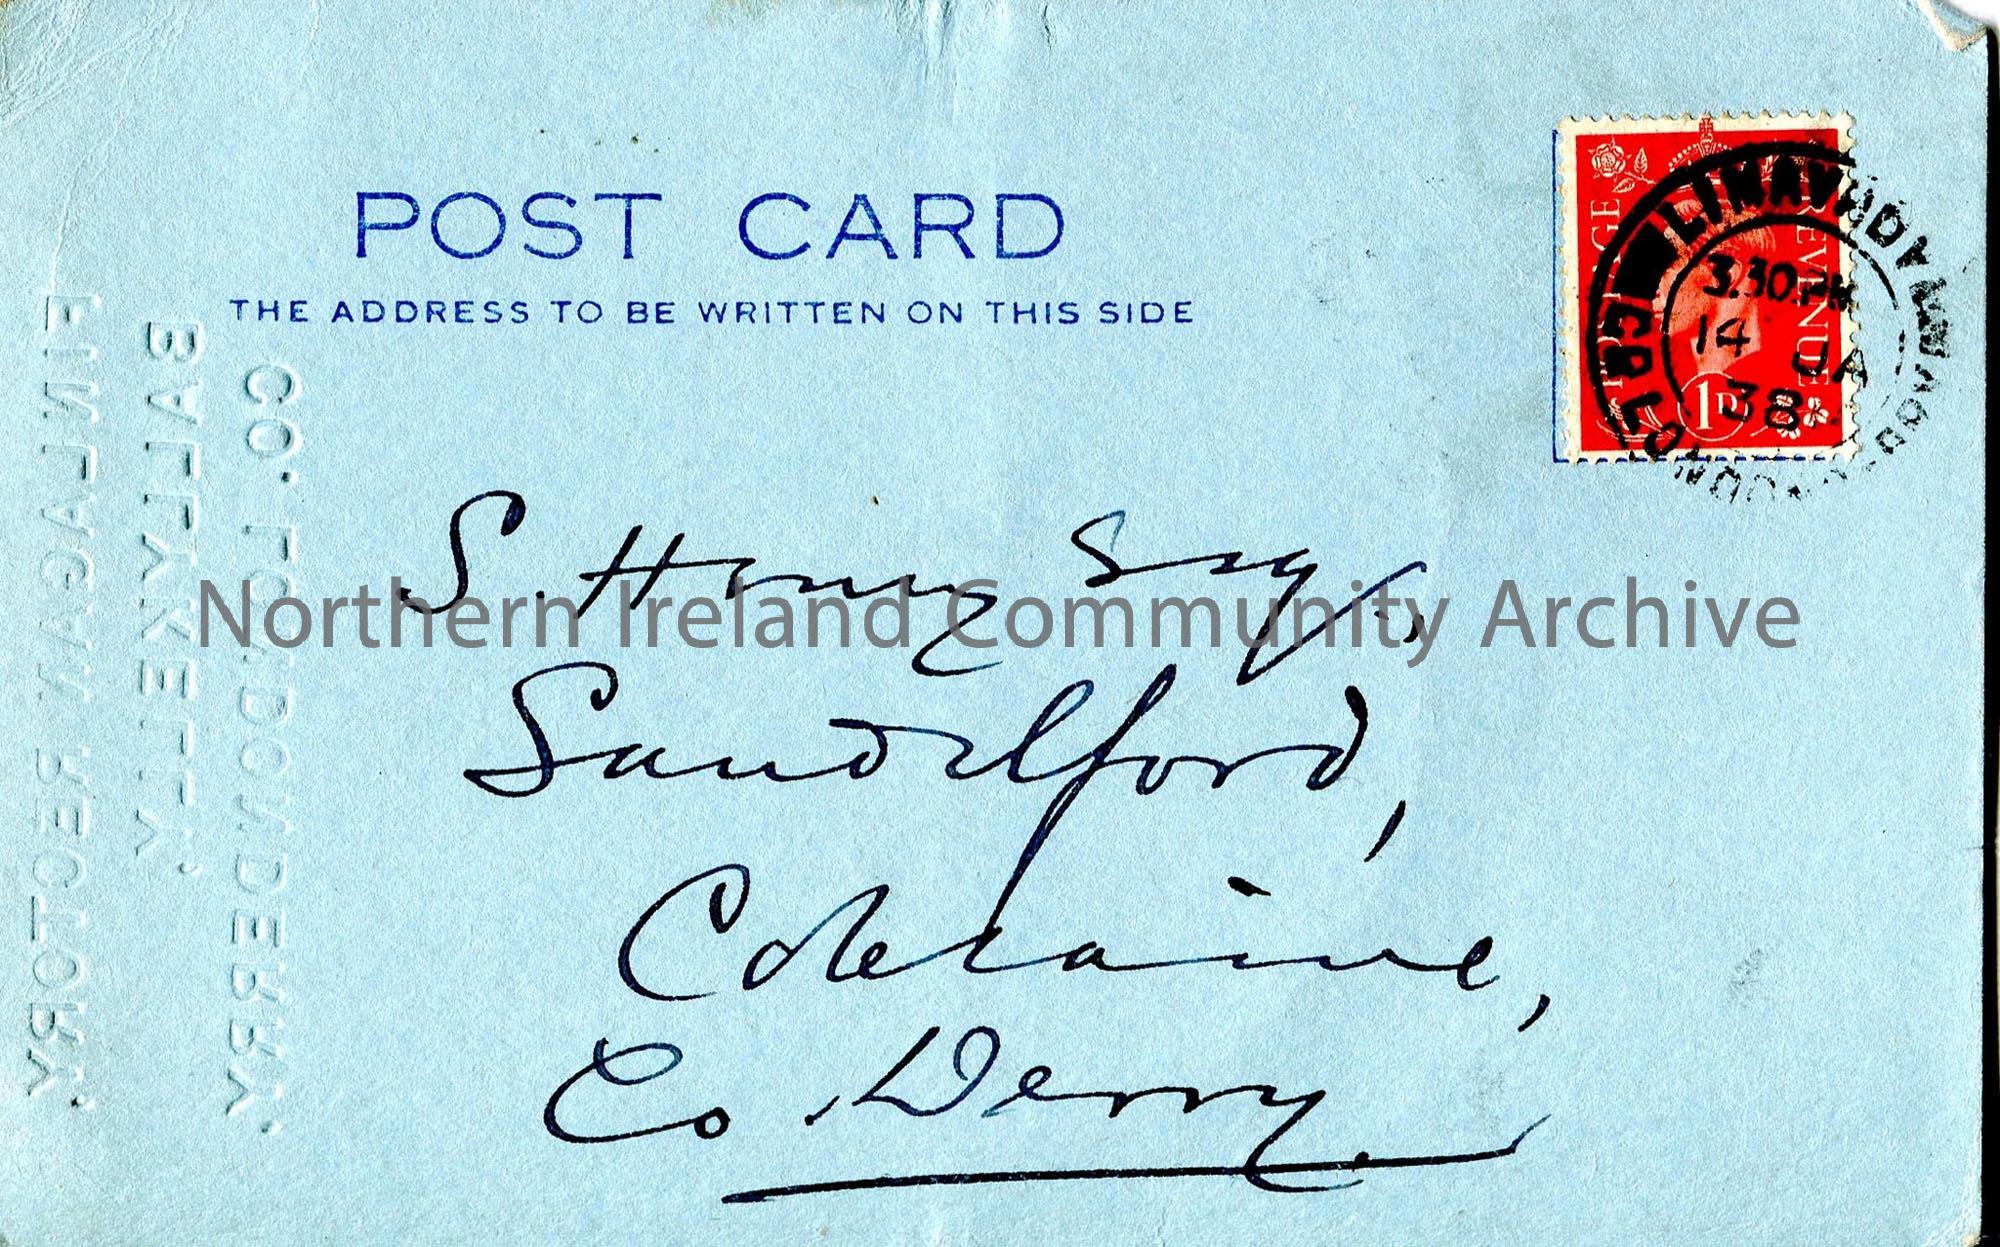 POST CARD
THE ADDRESS TO BE WRITTEN ON THIS SIDE
POSTAGE REVENUE
1D
LIMAVADY
3.30 PM
14 JA
38
LONDONDERRY
S. Henry Esq.,
Sandelford,
Coleraine,
Co. Derry.
FINLAGAN RECTORY
BALLYKELLY,
CO. LONDONDERRY.
Northern Ireland Community Archive